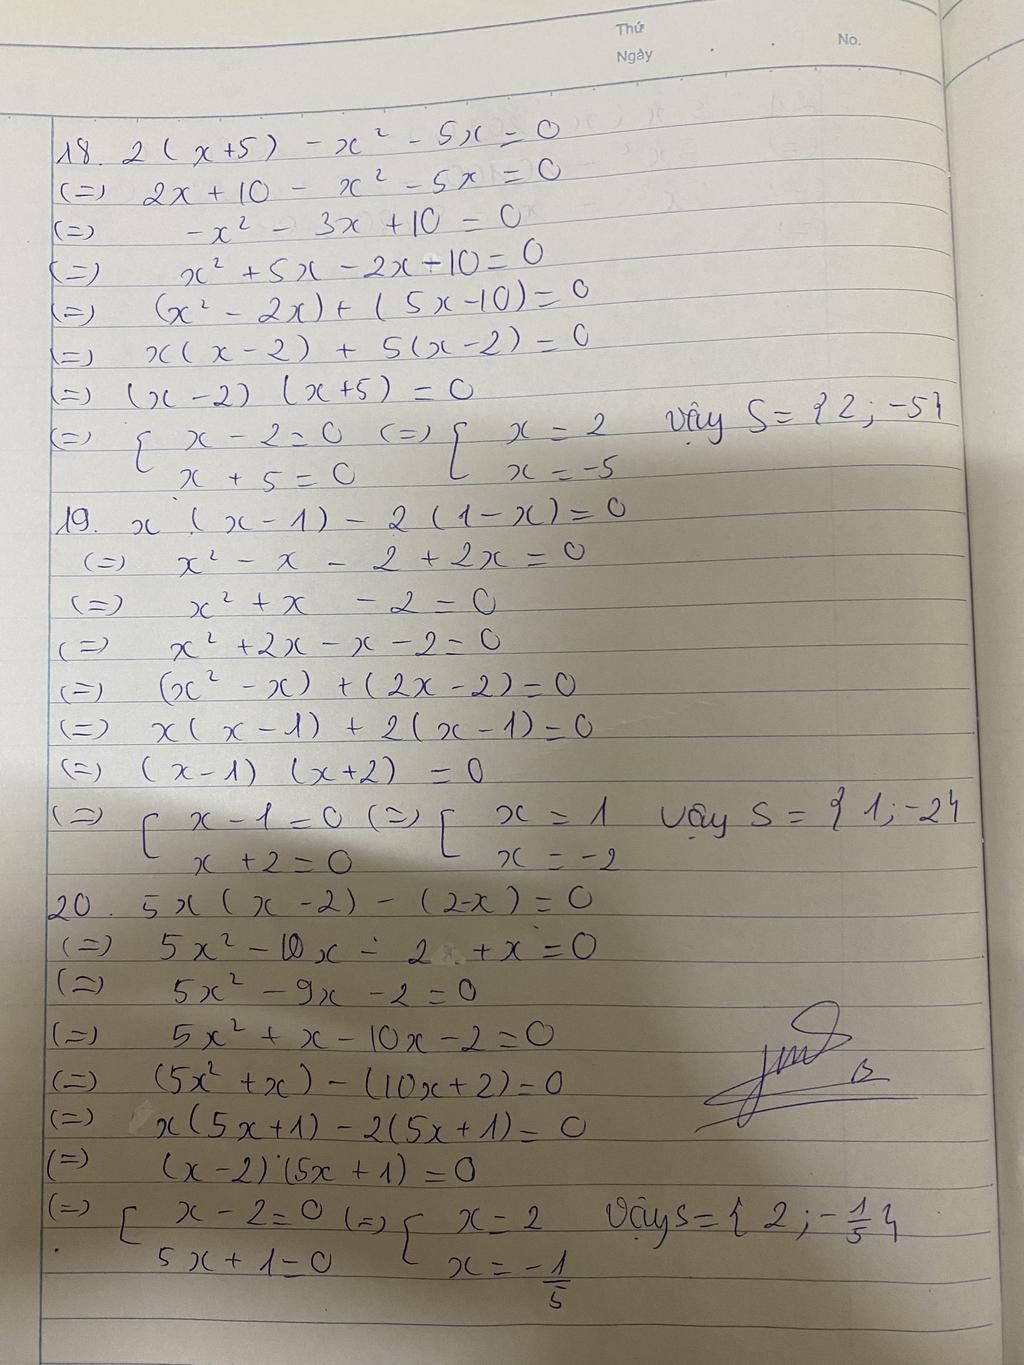 Thứ
Ngày
No.
18. 2(x+5) - x² - 5x = 0
(=) 2x + 10 - x² - 5x = 0
(=) -x² - 3x + 10 = 0
(=) x² + 5x - 2x - 10 = 0
(=) (x² - 2x) + (5x - 10) = 0
(=) x(x - 2) + 5(x - 2) = 0
(=) (x - 2) (x + 5) = 0
(=) [ x - 2 = 0 (=) [ x = 2 Vậy S = { 2 ; -5}
x + 5 = 0 x = -5
19. x (x - 1) - 2 (1 - x) = 0
(=) x² - x - 2 + 2x = 0
(=) x² + x - 2 = 0
(=) x² + 2x - x - 2 = 0
(=) (x² - x) + (2x - 2) = 0
(=) x(x - 1) + 2(x - 1) = 0
(=) (x - 1) (x + 2) = 0
(=) [ x - 1 = 0 (=) [ x = 1 Vậy S = { 1 ; -2}
x + 2 = 0 x = -2
20. 5x(x - 2) - (2-x) = 0
(=) 5x² - 10x - 2 + x = 0
(=) 5x² - 9x - 2 = 0
(=) 5x² + x - 10x - 2 = 0
(=) (5x² + x) - (10x + 2) = 0
(=) x(5x + 1) - 2(5x + 1) = 0
(=) (x - 2) (5x + 1) = 0
(=) [ x - 2 = 0 (=) [ x = 2 Vậy S = { 2 ; -1/5 }
5x + 1 = 0 x = -1/5